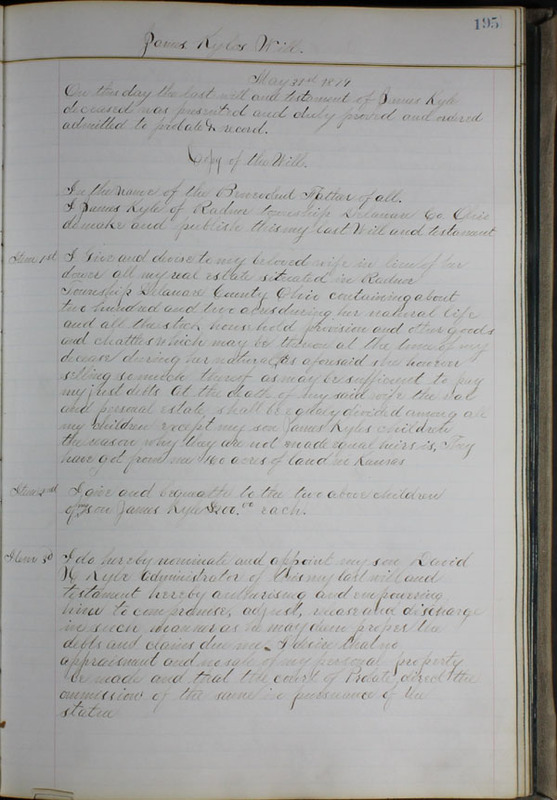 195
James Kyles Will.
May 23rd 1879
On this day the last will and testament of James Kyle
deceased was presented and duly proved and ordered
admitted to probate & record.
Copy of the Will.
In the name of the Benevolent Father of all.
I James Kyle of Radnor township Delaware Co. Ohio
do make and publish this my last Will and testament
Item 1st I Give and devise to my beloved wife in lieu of her
dower all my real estate situated in Radnor
Township Delaware County Ohio containing about
two hundred and two acres during her natural life
and all the stock household provision and other goods
and chattles which may be thereon at the time of my
decease during her natural as aforesaid she however
selling so much thereof as may be sufficient to pay
my just debts At the death of my said wife the real
and personal estate shall be equaly divided among all
my children except my son James Kyles children
the reason why they are not made equal heirs is, They
have got from me 160 acres of land in Kansas
Item 2nd I give and bequeath to the two above children
of my son James Kyle $200.00 each.
Item 3d I do hereby nominate and appoint my son David
H Kyle administrator of this my last will and
testament hereby authorising and empowering
him to compromise, adjust, release and discharge
in such manner as he may deem proper the
debts and claims due me. I desire that no
appraisment and no sale of my personal property
be made and that the court of Probate direct the
ommission of the same in pursuance of the
statue